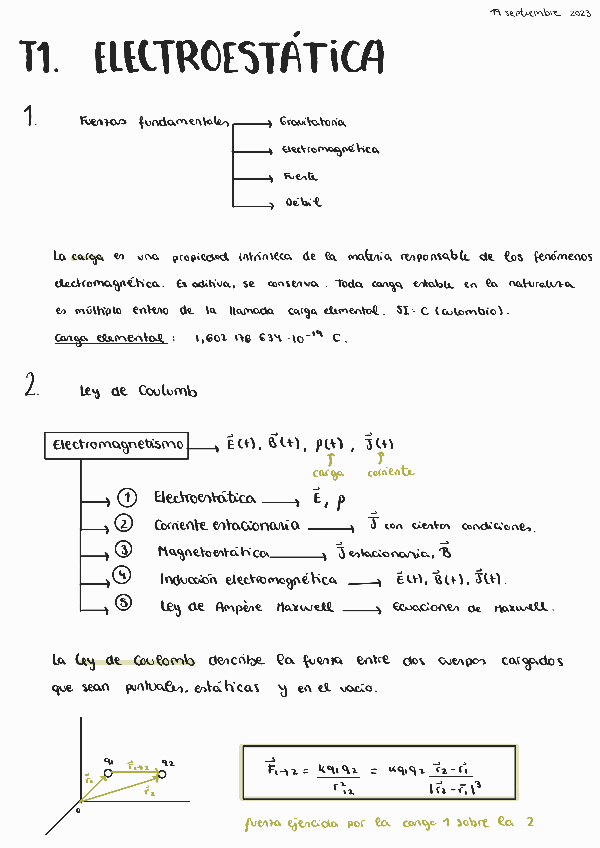 19 septiembre 2023
T1. ELECTROESTÁTICA
1. Fuerzas fundamentales → Gravitatoria
→ Electromagnética
→ Fuerte
→ Débil
La carga es una propiedad intrínseca de la materia responsable de los fenómenos
electromagnética. Es aditiva, se conserva. Toda carga estable en la naturaleza
es múltiplo entero de la llamada carga elemental. SI: C (culombio).
Carga elemental: 1,602 176 634 · 10⁻¹⁹ C.
2. Ley de Coulumb
Electromagnetismo → E⃗(t), B⃗(t), ρ(t), J⃗(t)
carga corriente
① Electroestática → E⃗, ρ
② Corriente estacionaria → J⃗ con ciertas condiciones.
③ Magnetoestática → J⃗ estacionaria, B⃗
④ Inducción electromagnética → E⃗(t), B⃗(t), J⃗(t).
⑤ Ley de Ampère Maxwell → Ecuaciones de Maxwell.
La Ley de Coulomb describe la fuerza entre dos cuerpos cargados
que sean puntuales, estáticas y en el vacío.
q₁ r⃗₁→₂ q₂
r⃗₁ r⃗₂
0
F⃗₁→₂ = kq₁q₂ / r²₁₂ = kq₁q₂ (r⃗₂ - r⃗₁) / |r⃗₂ - r⃗₁|³
fuerza ejercida por la carga 1 sobre la 2